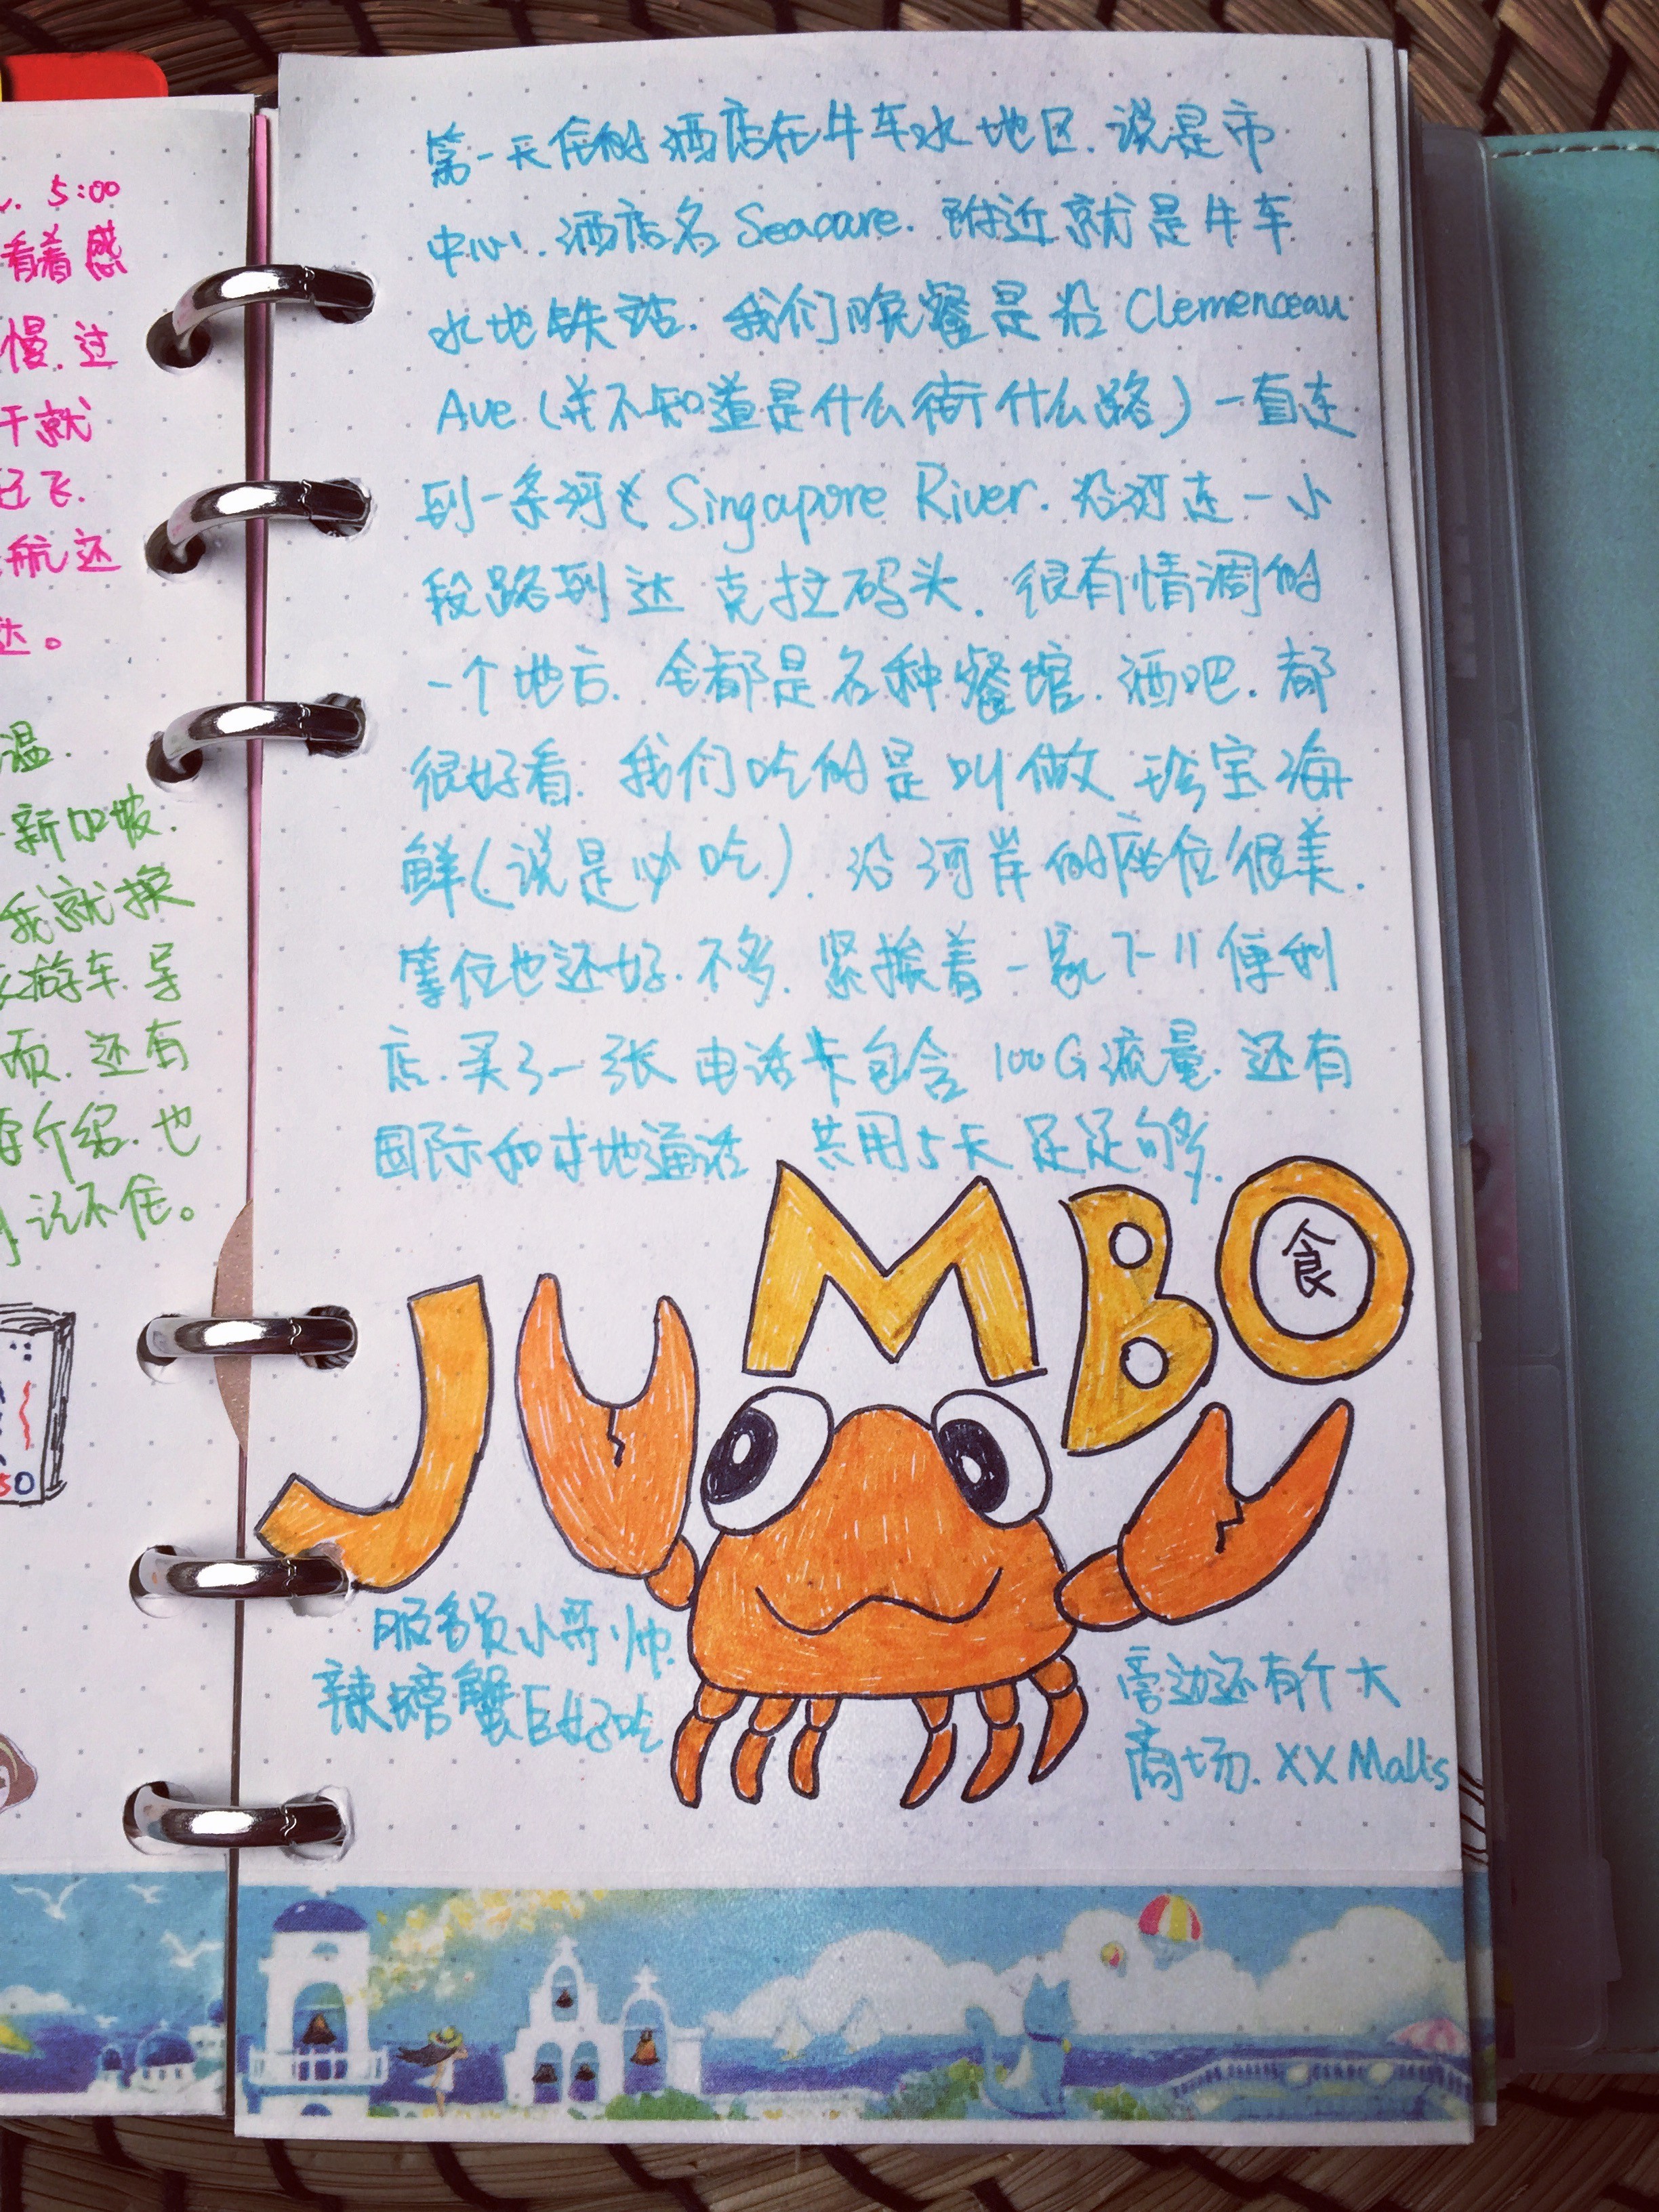 5:00
看着感
慢.过
干就
起飞.
航还
达。
温.
新加坡.
我就换
游车.导
项.还有
介绍.也
记不住。
50
第一天住的酒店在牛车水地区.说是市
中心.酒店名Seacare.附近就是牛车
水地铁站.我们晚餐是沿Clemenceau
Ave(并不知道是什么街什么路)一直走
到一条河 Singapore River.沿河走一小
段路到达克拉码头.很有情调的
一个地方.全都是各种餐馆.酒吧.都
很好看.我们吃的是叫做珍宝海
鲜(说是必吃).沿河岸的座位很美.
等位也还好.不多.紧挨着一家 便利
店.买了一张电话卡包含100G流量.还有
国际和本地通话 共用5天足足够.
JUMBO
食
服务员小哥帅.
辣螃蟹巨好吃
旁边还有个大
商场.XX Malls